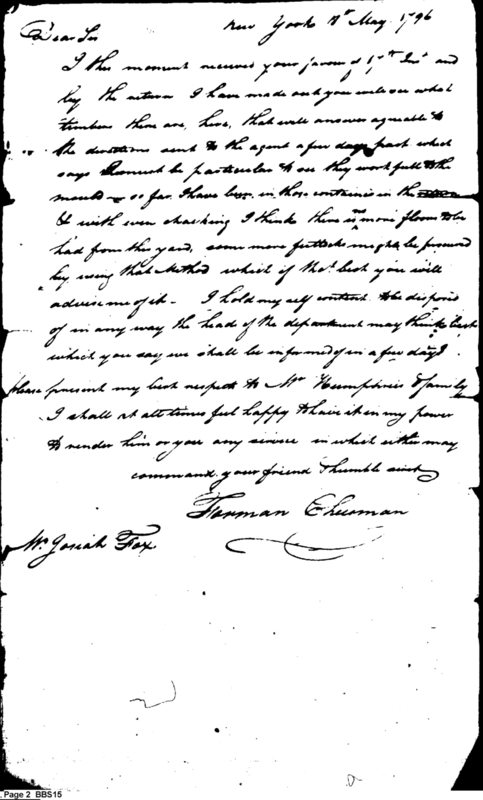 New York 8th May 1796
Dear Sir
I this moment received your favour of 7th Inst and
by the return I have made out you will see what
timbers there are, here, that will answer agreable to
the directions sent to the agent a few days past which
says I must be particular to see they work full to the
moulds so far I have in those contained in the
& with even chacking I think there is more floors to be
had from this yard, some more futtocks might be procured
by using that Method which if thot best you will
advise me of it - I hold my self content to be disposed
of in any way the head of the department may think best
which you say we shall be informed of in a few days
please present my best respects to Mr Humphries & family
I shall at all times feel happy to have it in my power
to render him or you any sirvice in which either may
command your friend & humble sirvt
Forman Cheesman
Mr Josiah Fox
. Page 2 BBS15